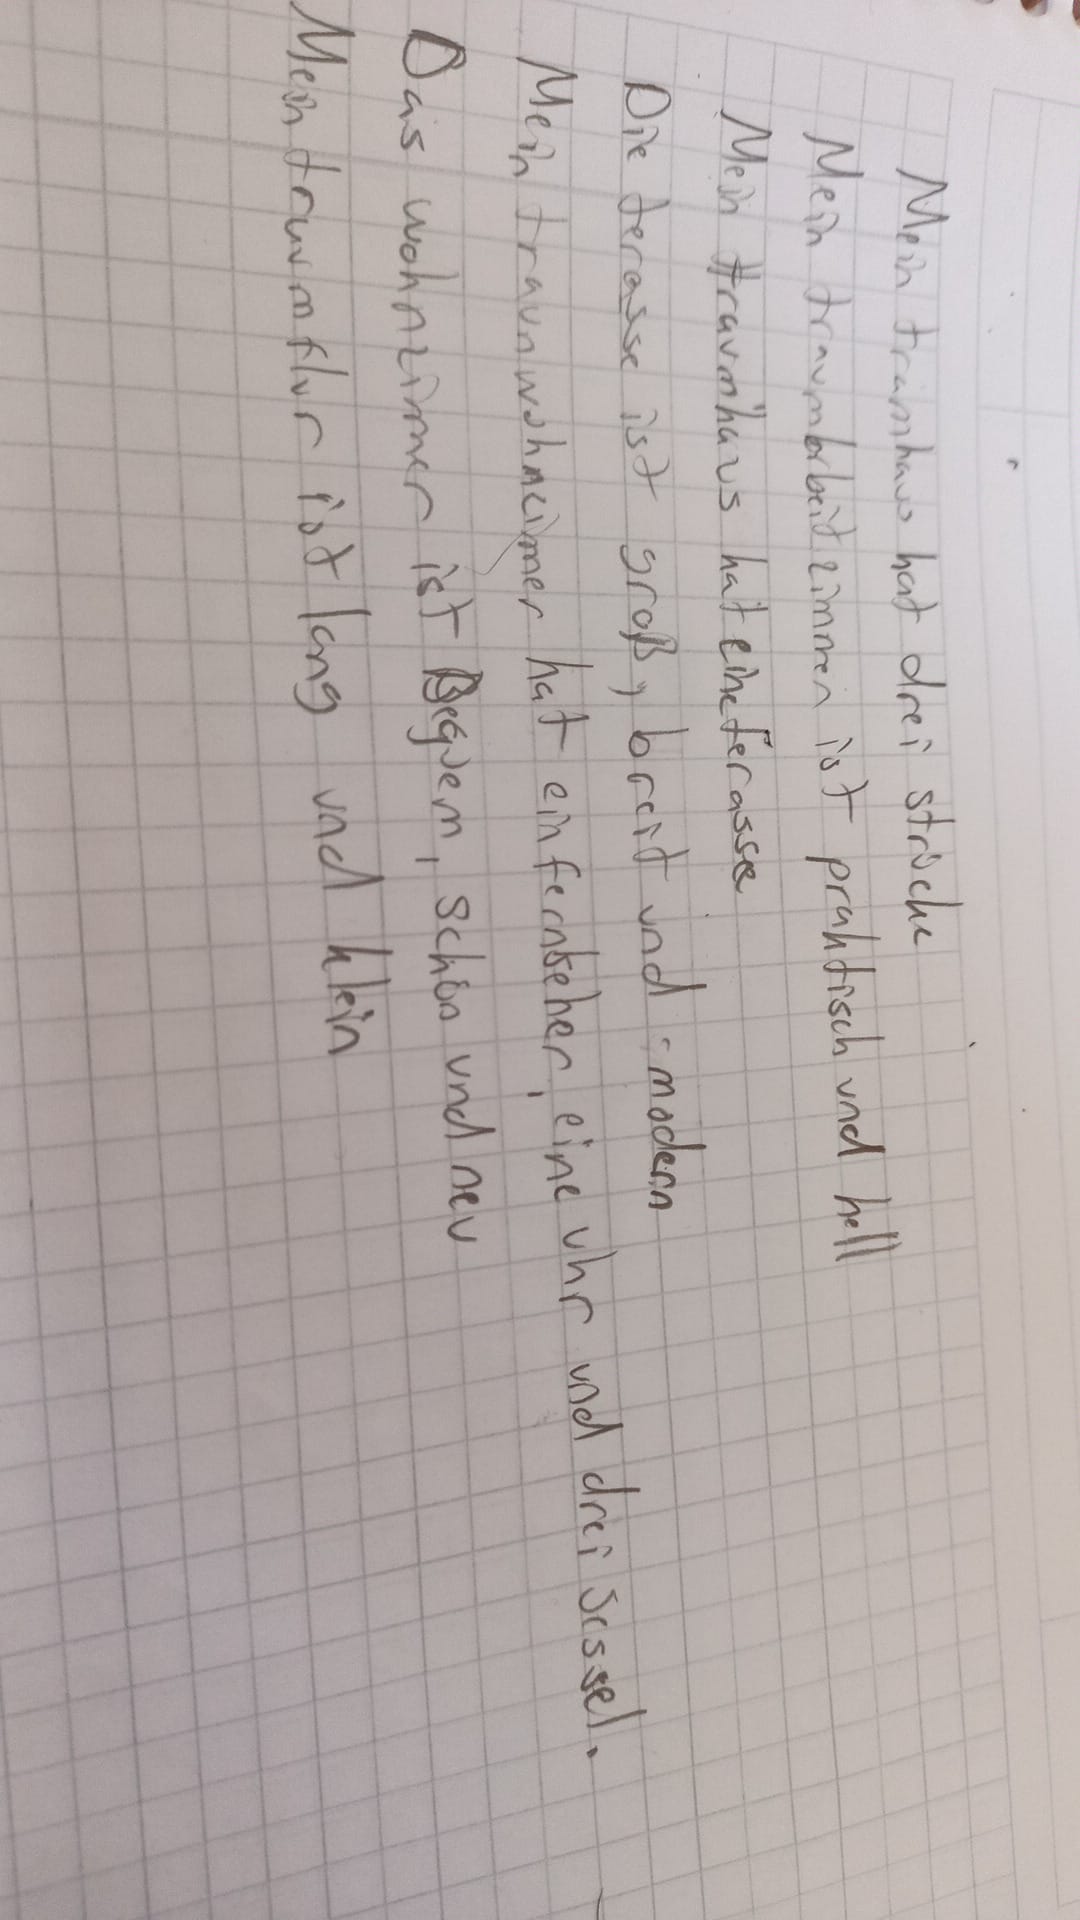 Mein tramhaus hat drei strocke
Mein traumarbeitzimmer ist praktisch und hell
Mein traumhaus hat eine terasse
Die terasse ist groß, breit und modern
Mein traumwohnzimer hat ein fernseher, eine uhr und drei sessel.
Das wohnzimer ist Bequem, schön und neu
Mein traumflur ist lang und klein